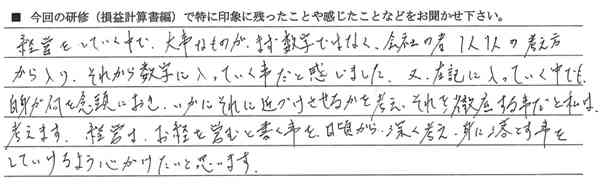 ■ 今回の研修（損益計算書編）で特に印象に残ったことや感じたことなどをお聞かせ下さい。
経営をしていく中で、大事なものが、まず数字ではなく、会社の者1人1人の考え方
から入り、それから数字に入っていく事だと感じました。又、左記に入っていく中でも、
自身が何を念頭におき、いかにそれに近づけさせるかを考え、それを徹底する事だと私は
考えます。経営は、お経を営むと書く事を、日頃から深く考え、身に落とす事を
していけるよう心がけたいと思います。